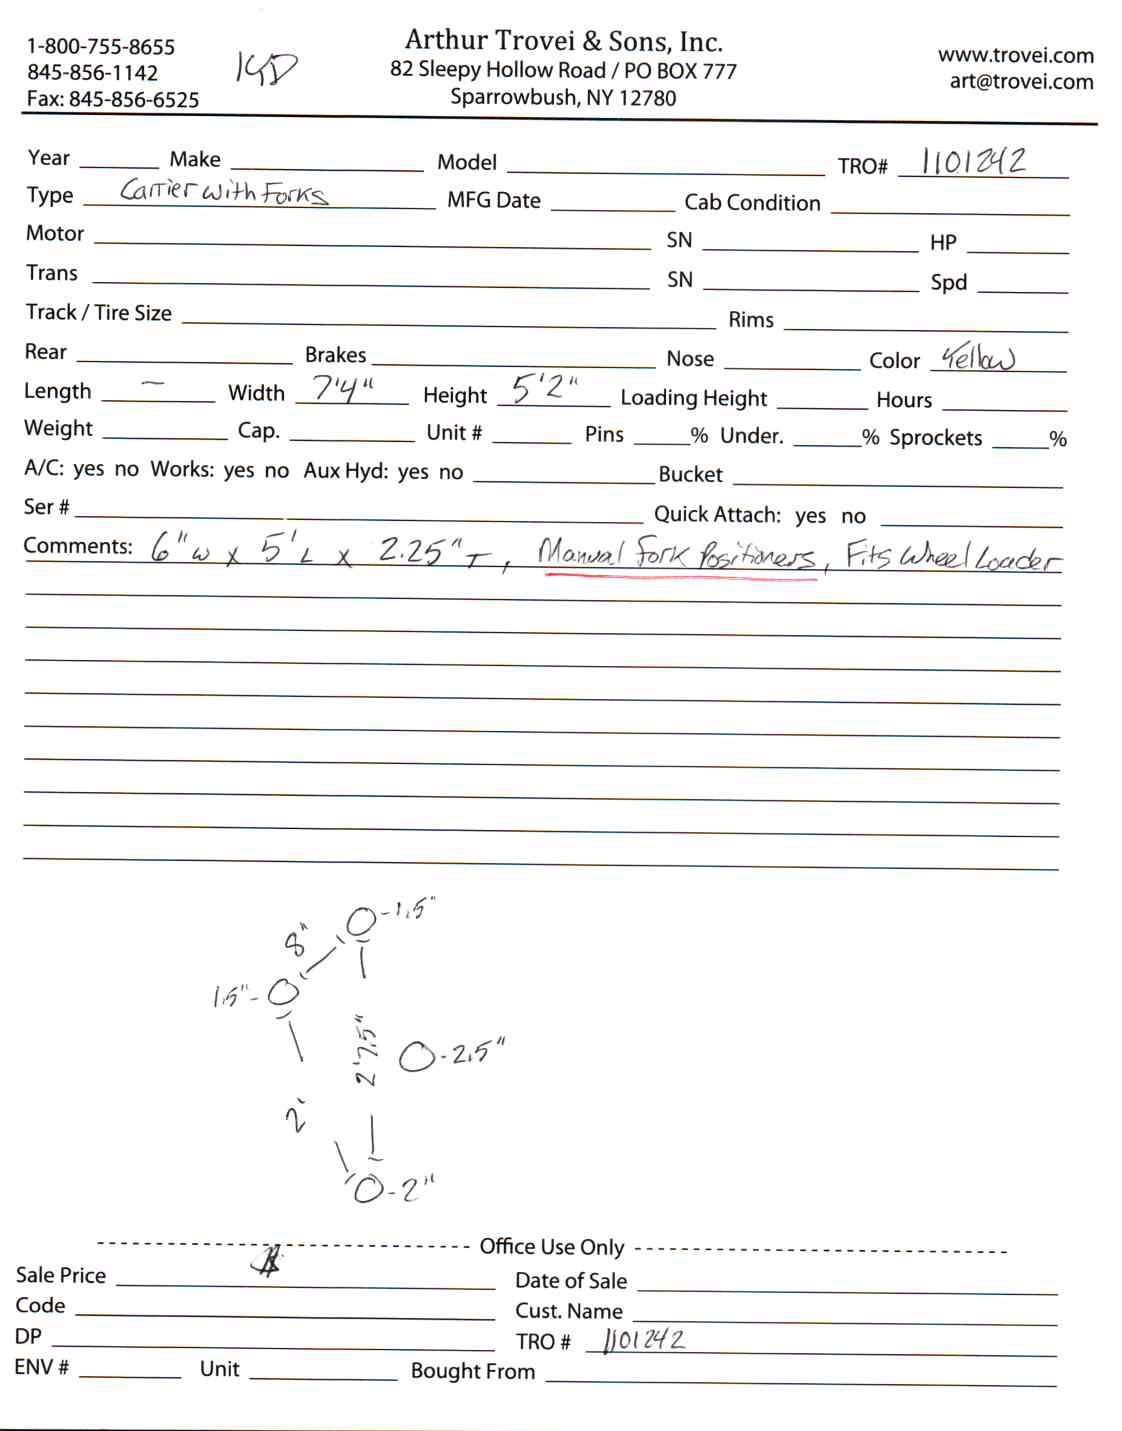 Arthur Trovei & Sons, Inc.
1-800-755-8655 82 Sleepy Hollow Road / PO BOX 777 www.trovei.com
845-856-1142 Sparrowbush, NY 12780 art@trovei.com
Fax: 845-856-6525
Year Make Model TRO# 1101242
Type Carrier with Forks MFG Date Cab Condition
Motor SN HP
Trans SN Spd
Track / Tire Size Rims
Rear Brakes Nose Color Yellow
Length — Width 7'4" Height 5'2" Loading Height Hours
Weight Cap. Unit # Pins % Under. % Sprockets %
A/C: yes no Works: yes no Aux Hyd: yes no Bucket
Ser # Quick Attach: yes no
Comments: 6"W x 5'L x 2.25"T, Manual Fork Positioners, Fits Wheel Loader
O-1.5"
8"
1.5"-O
2'7.5"
O-2.5"
2'
O-2"
Office Use Only
Sale Price Date of Sale
Code Cust. Name
DP TRO # 1101242
ENV # Unit Bought From